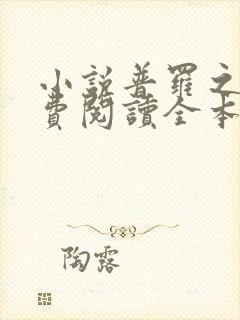 小說普羅之
費閱讀全本
陶露